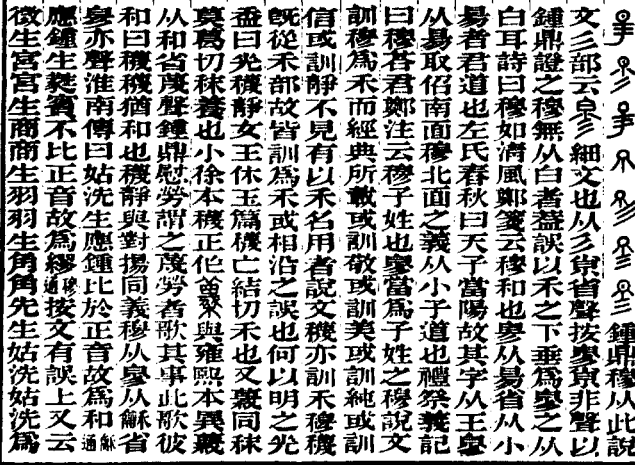 鍾鼎穆从此說
文彡部云㣎細文也从彡㡭省聲按㣎㡭非聲以
鍾鼎證之穆無从白者葢誤以禾之下垂爲㣎之从
白耳詩曰穆如清風鄭箋云穆和也㣎从昜省从小
昜者君道也左氏春秋曰天子當陽故其字从王㣎
从昜取佋南面穆北面之義从小子道也禮祭義記
曰穆荅君鄭注云穆子姓也㣎當爲子姓之穆說文
訓穆爲禾而經典所載或訓敬或訓美或訓純或訓
信或訓靜不見有以禾名用者說文穖亦訓禾穆穖
旣從禾部故皆訓爲禾或相沿之誤也何以明之尣
盉曰尣穖靜女王休玉篇穖亡結切禾也又䅼同秣
莫葛切秣養也小徐本穖正作與雍熙本異
从和省蔑聲鍾鼎慰勞謂之蔑勞者歌其事此歌彼
和曰穖穖猶和也穖靜與對揚同義穆从㣎从龢省
㣎亦聲淮南傳曰姑洗生應鍾比於正音故爲和通龢
應鍾生蕤賓不比正音故爲繆通穆按文有誤上文云
徵生宮宮生商商生羽羽生角角先生姑洗姑洗爲